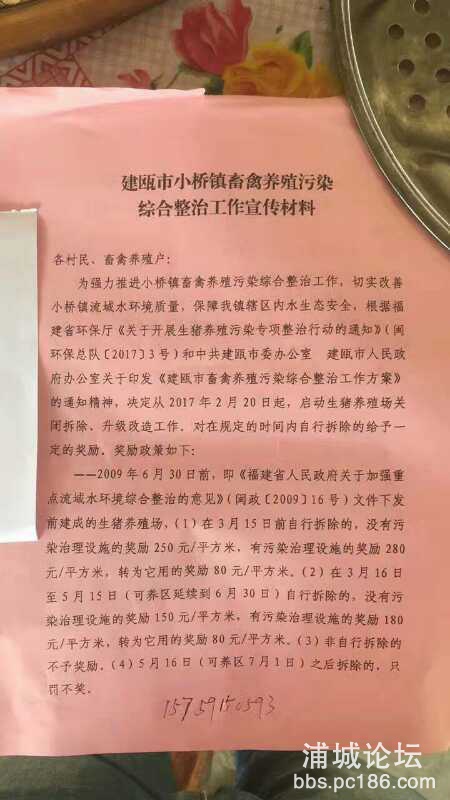 建瓯市小桥镇畜禽养殖污染
综合整治工作宣传材料
各村民、畜禽养殖户：
为强力推进小桥镇畜禽养殖污染综合整治工作，切实改善
小桥镇流域水环境质量，保障我镇辖区内水生态安全，根据福
建省环保厅《关于开展生猪养殖污染专项整治行动的通知》（闽
环保总队〔2017〕3号）和中共建瓯市委办公室　建瓯市人民政
府办公室关于印发《建瓯市畜禽养殖污染综合整治工作方案》
的通知精神，决定从2017年2月20日起，启动生猪养殖场关
闭拆除、升级改造工作，对在规定的时间内自行拆除的给予一
定的奖励。奖励政策如下：
——2009年6月30日前，即《福建省人民政府关于加强重
点流域水环境综合整治的意见》（闽政〔2009〕16号）文件下发
前建成的生猪养殖场，（1）在3月15日前自行拆除的，没有污
染治理设施的奖励250元/平方米，有污染治理设施的奖励280
元/平方米，转为它用的奖励80元/平方米。（2）在3月16日
至5月15日（可养区延续到6月30日）自行拆除的，没有污
染治理设施的奖励150元/平方米，有污染治理设施的奖励180
元/平方米，转为它用的奖励80元/平方米。（3）非自行拆除的
不予奖励。（4）5月16日（可养区7月1日）之后拆除的，只
罚不奖。
15759150593
浦城论坛
bbs.pc186.com